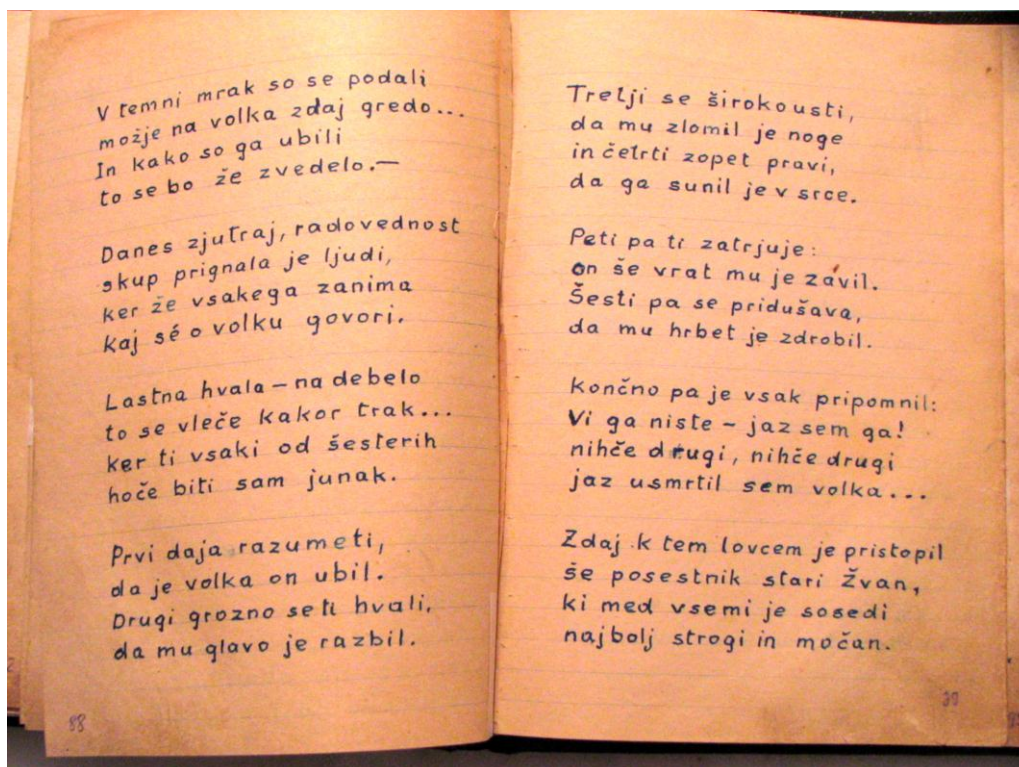 V temni mrak so se podali
možje na volka zdaj gredo...
In kako so ga ubili
to se bo že zvedelo.—
Danes zjutraj, radovednost
skup prignala je ljudi,
ker že vsakega zanima
kaj sé o volku govori.
Lastna hvala – na debelo
to se vleče kakor trak...
ker ti vsaki od šesterih
hoče biti sam junak.
Prvi daja razumeti,
da je volka on ubil.
Drugi grozno se ti hvali,
da mu glavo je razbil.
88
Tretji se širokousti,
da mu zlomil je noge
in četrti zopet pravi,
da ga sunil je v srce.
Peti pa ti zatrjuje:
on še vrat mu je zavil.
Šesti pa se pridušava,
da mu hrbet je zdrobil.
Končno pa je vsak pripomnil:
Vi ga niste – jaz sem ga!
nihče drugi, nihče drugi
jaz usmrtil sem volka...
Zdaj k tem lovcem je pristopil
še posestnik stari Žvan,
ki med vsemi je sosedi
najbolj strogi in močan.